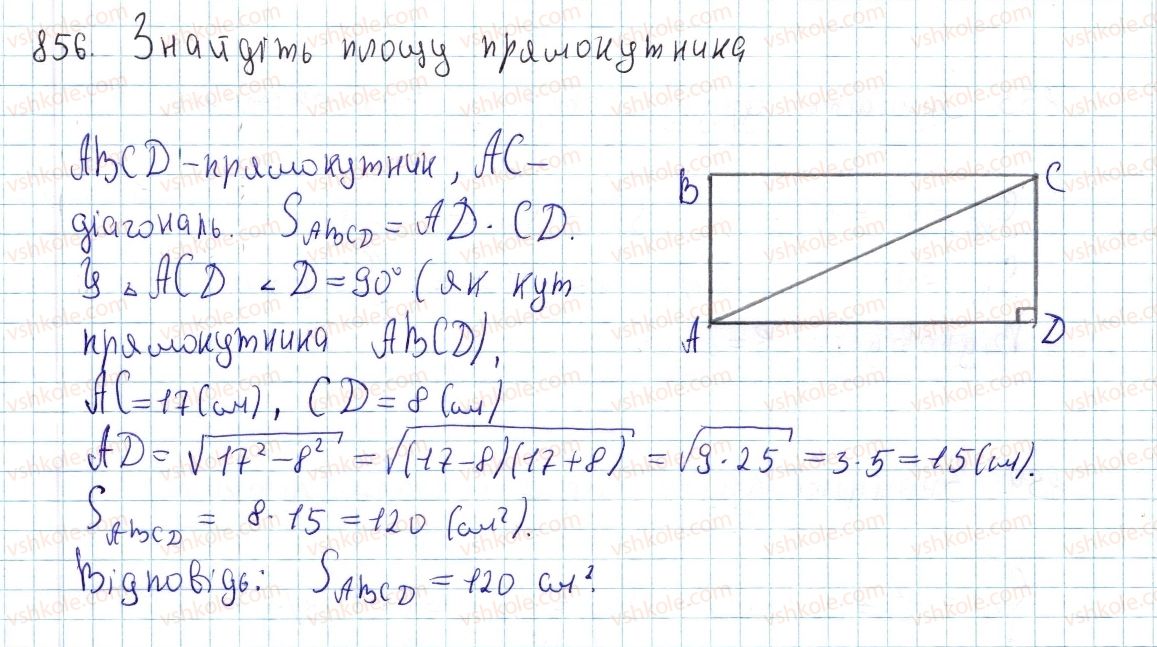 856. Знайдіть площу прямокутника
ABCD - прямокутник, AC -
діагональ. S_ABCD = AD · CD.
У △ ACD ∠ D = 90° (як кут
прямокутника ABCD),
AC = 17 (см), CD = 8 (см)
AD = √(17² - 8²) = √((17-8)(17+8)) = √(9·25) = 3·5 = 15 (см).
S_ABCD = 8·15 = 120 (см²).
Відповідь: S_ABCD = 120 см².
B
C
A
D
vshkole.com